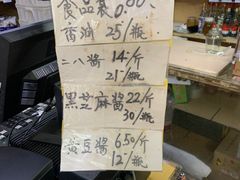 食品袋 0.80
香油 25/瓶
二八酱 14/斤
21/瓶
黑芝麻酱 22/斤
30/瓶
黄豆酱 6.50/斤
12/瓶